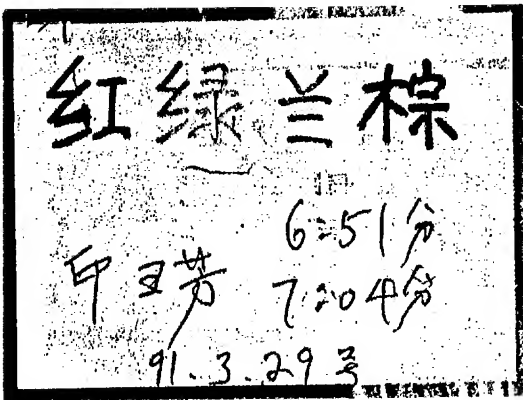 红绿兰棕
6:51分
印玉芳
7:04分
91.3.29号